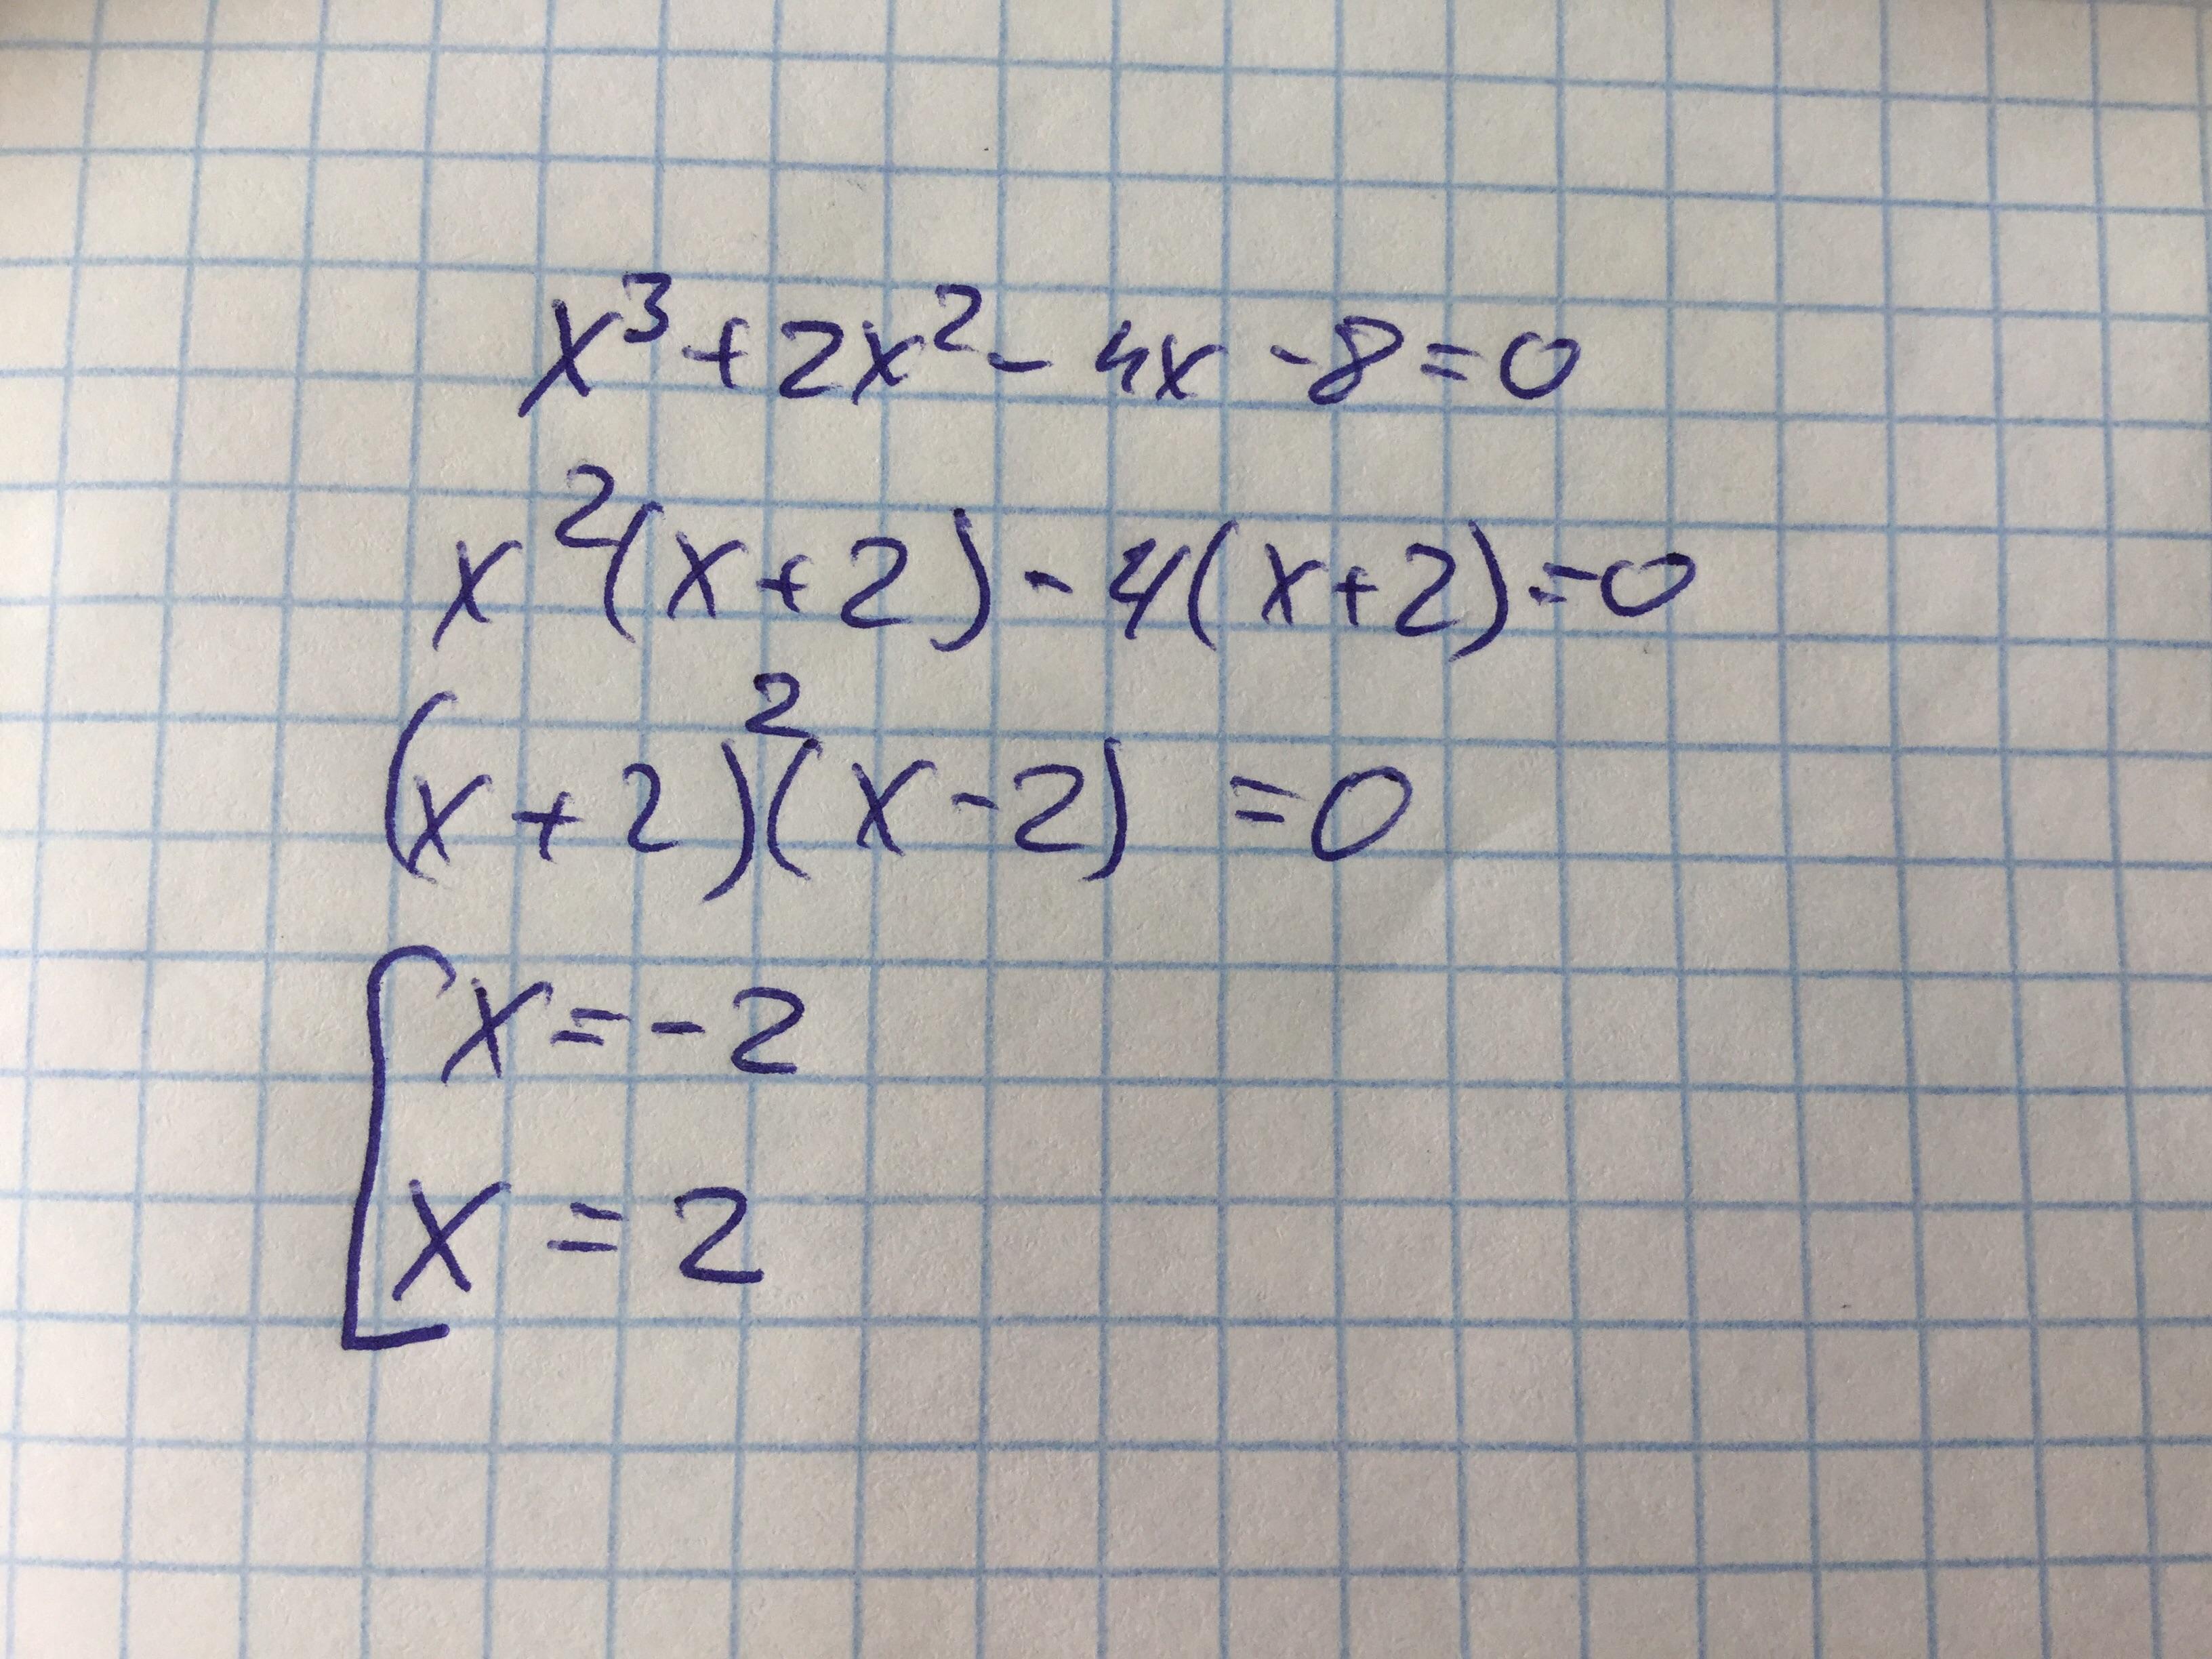 x³+2x²-4x-8=0
x²(x+2)-4(x+2)=0
(x+2)²(x-2)=0
[x=-2
x=2